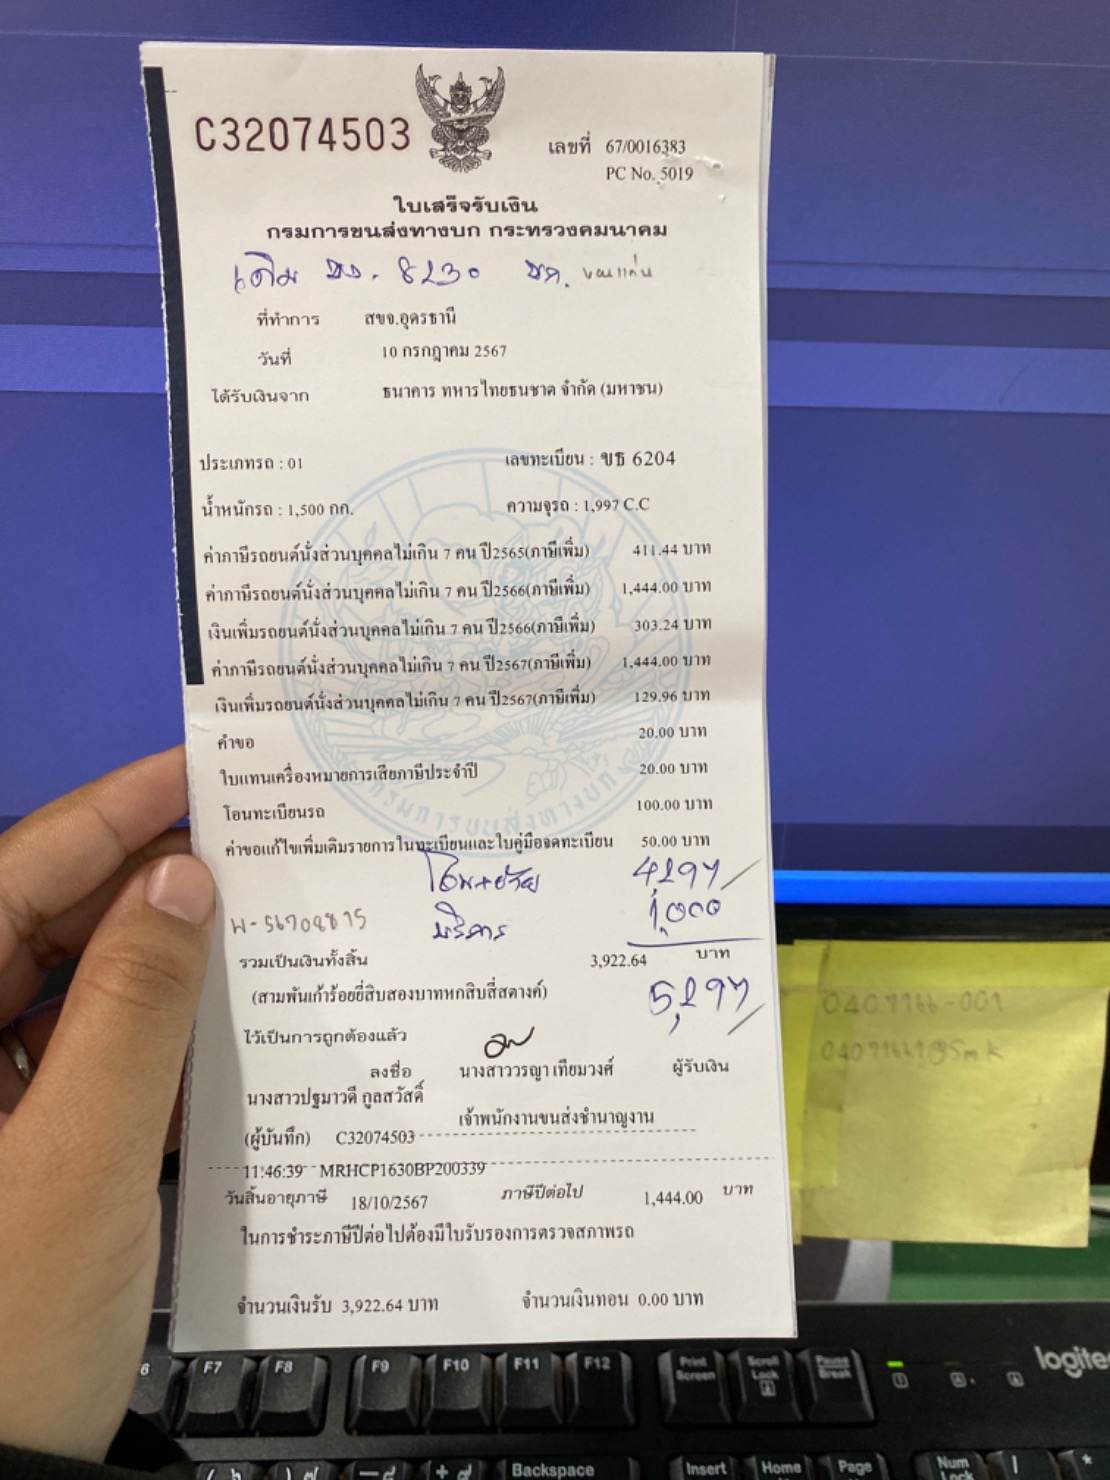 C32074503
เลขที่ 67/0016383
PC No. 5019
ใบเสร็จรับเงิน
กรมการขนส่งทางบก กระทรวงคมนาคม
เดิม 8230 ขอนแก่น
ที่ทำการ สขจ.อุดรธานี
วันที่ 10 กรกฎาคม 2567
ได้รับเงินจาก ธนาคาร ทหารไทยธนชาต จำกัด (มหาชน)
ประเภทรถ : 01 เลขทะเบียน : ขธ 6204
น้ำหนักรถ : 1,500 กก. ความจุรถ : 1,997 C.C
ค่าภาษีรถยนต์นั่งส่วนบุคคลไม่เกิน 7 คน ปี2565(ภาษีเพิ่ม) 411.44 บาท
ค่าภาษีรถยนต์นั่งส่วนบุคคลไม่เกิน 7 คน ปี2566(ภาษีเพิ่ม) 1,444.00 บาท
เงินเพิ่มรถยนต์นั่งส่วนบุคคลไม่เกิน 7 คน ปี2566(ภาษีเพิ่ม) 303.24 บาท
ค่าภาษีรถยนต์นั่งส่วนบุคคลไม่เกิน 7 คน ปี2567(ภาษีเพิ่ม) 1,444.00 บาท
เงินเพิ่มรถยนต์นั่งส่วนบุคคลไม่เกิน 7 คน ปี2567(ภาษีเพิ่ม) 129.96 บาท
คำขอ 20.00 บาท
ใบแทนเครื่องหมายการเสียภาษีประจำปี 20.00 บาท
โอนทะเบียนรถ 100.00 บาท
ค่าขอแก้ไขเพิ่มเติมรายการในทะเบียนและใบคู่มือจดทะเบียน 50.00 บาท
กรมการขนส่งทางบก
4,297
บริการ 1,000
รวมเป็นเงินทั้งสิ้น 3,922.64 บาท
(สามพันเก้าร้อยยี่สิบสองบาทหกสิบสี่สตางค์) 5,297
ไว้เป็นการถูกต้องแล้ว
ลงชื่อ นางสาววรญา เทียมวงศ์ ผู้รับเงิน
นางสาวปฐมาวดี กูลสวัสดิ์
เจ้าพนักงานขนส่งชำนาญงาน
(ผู้บันทึก) C32074503
11:46:39 MRHCP1630BP200339
วันสิ้นอายุภาษี 18/10/2567 ภาษีปีต่อไป 1,444.00 บาท
ในการชำระภาษีปีต่อไปต้องมีใบรับรองการตรวจสภาพรถ
จำนวนเงินรับ 3,922.64 บาท จำนวนเงินทอน 0.00 บาท
logite
F7 F8 F9 F10 F11 F12
Print Screen
Scroll Lock
Pause Break
Backspace
Insert Home Page
Num Lock